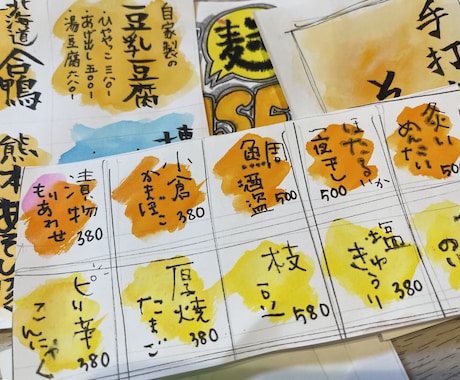 手打
自家製の
豆乳豆腐
ひややっこ 三八〇
あげ出し 五〇〇
湯豆腐 六八〇
北海道
合鴨
熊本
炙り
めんたい
ほたるいか
一夜干し
500
鯛酒盗
500
小倉
かまぼこ
380
漬物
もりあわせ
380
塩
きゅうり
380
枝豆
580
厚焼
たまご
380
ピリ辛
こんにゃく
380